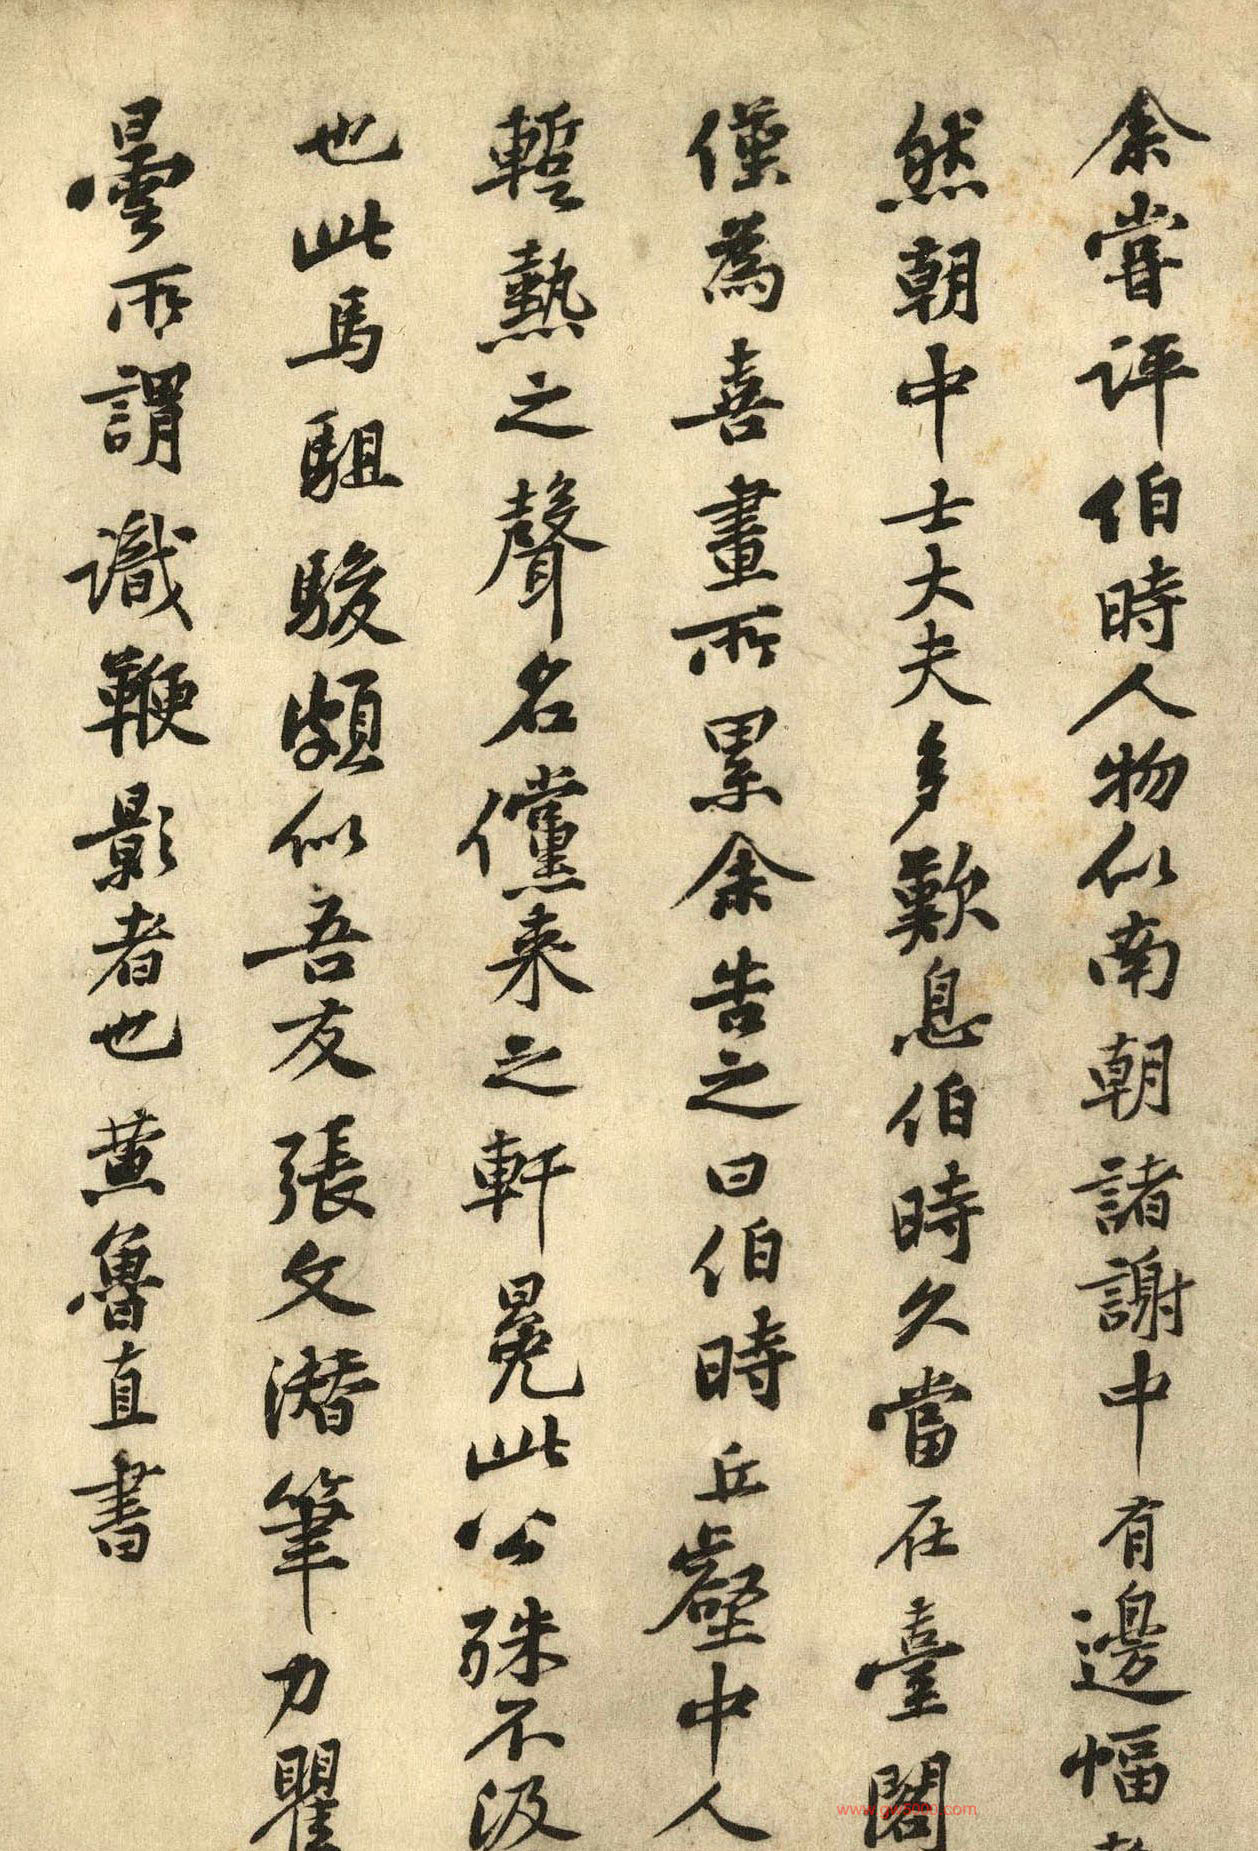 余嘗評伯時人物似南朝諸謝中有邊幅
然朝中士大夫多歎息伯時久當在臺閣
僅為喜畫所累余告之曰伯時丘壑中人
暫熱之聲名儻来之軒冕此公殊不汲
也此馬駔駿頗似吾友張文潜筆力瞿
曇所謂識鞭影者也黄魯直書
www.gw5000.com